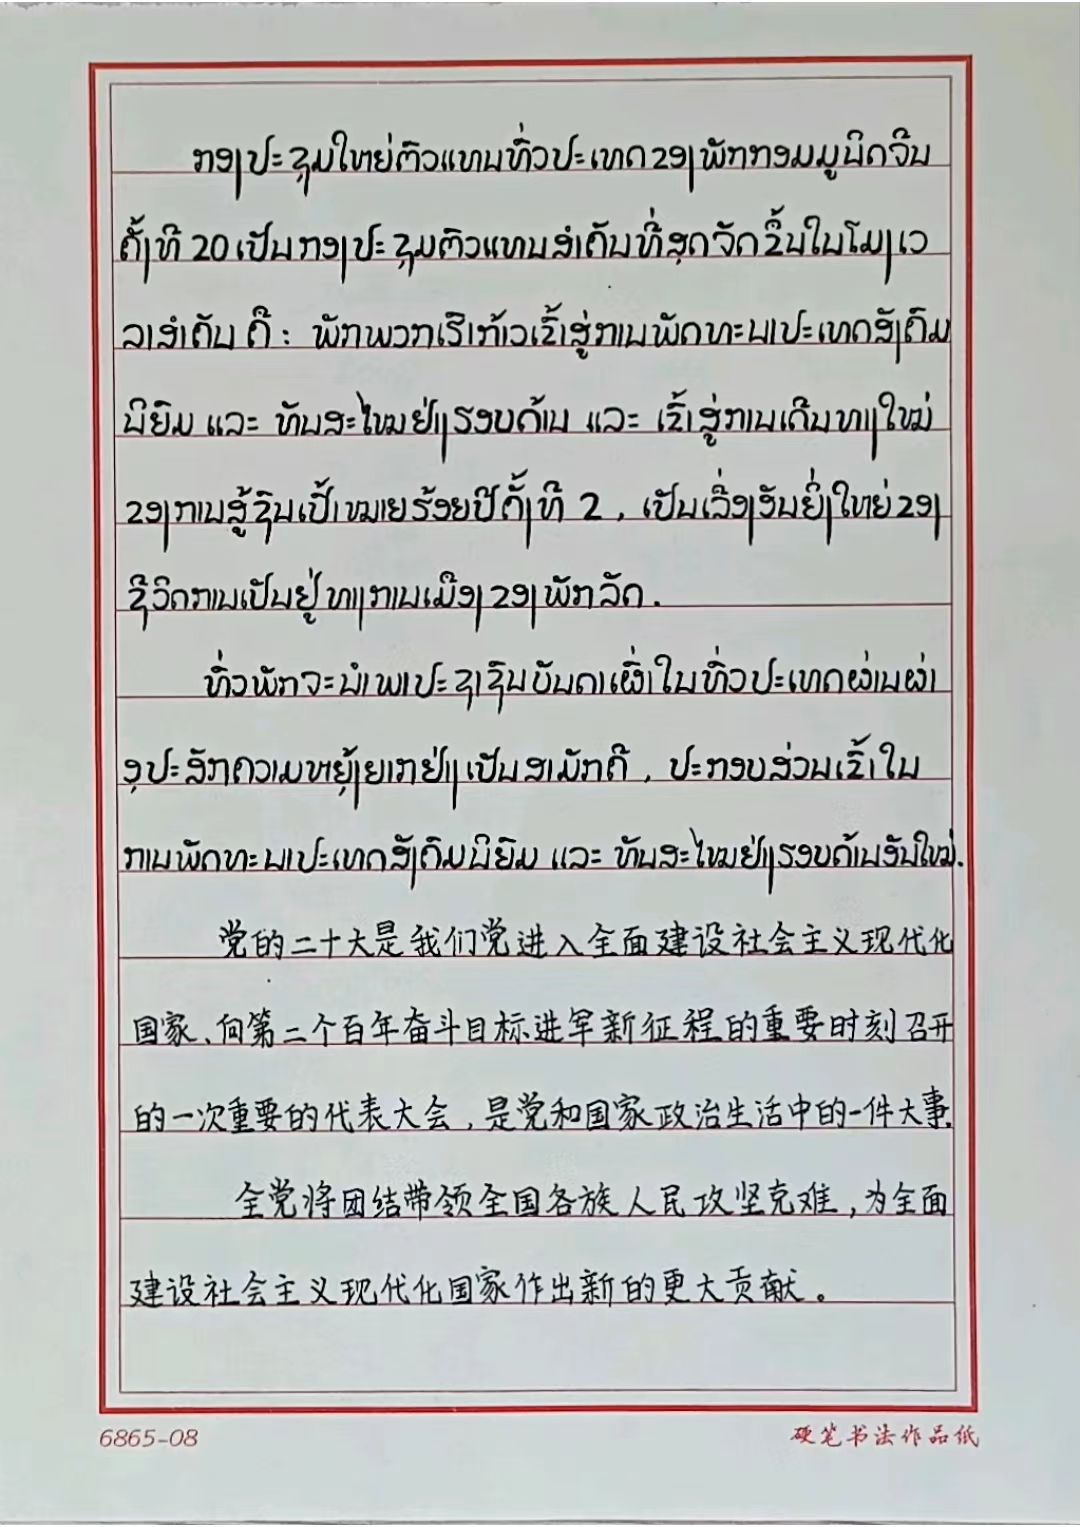 ກອງປະຊຸມໃຫຍ່ຕົວແທນທົ່ວປະເທດຂອງພັກກອມມູນິດຈີນ
ຄັ້ງທີ 20 ເປັນກອງປະຊຸມຕົວແທນສຳຄັນທີ່ສຸດຈັດຂຶ້ນໃນໂມງເວ
ລາສຳຄັນ ຄື : ພັກພວກເຮົາກ້າວເຂົ້າສູ່ການພັດທະນາປະເທດສັງຄົມ
ນິຍົມ ແລະ ທັນສະໄໝຢ່າງຮອບດ້ານ ແລະ ເຂົ້າສູ່ການເດີນທາງໃໝ່
ຂອງການສູ້ຊົນເປົ້າໝາຍຮ້ອຍປີຄັ້ງທີ 2 , ເປັນເລື່ອງອັນຍິ່ງໃຫຍ່ຂອງ
ຊີວິດການເປັນຢູ່ທາງການເມືອງຂອງພັກລັດ.
ທົ່ວພັກຈະນຳພາປະຊາຊົນບັນດາເຜົ່າໃນທົ່ວປະເທດຜ່ານຜ່າ
ອຸປະສັກຄວາມຫຍຸ້ງຍາກຢ່າງເປັນສາມັກຄີ , ປະກອບສ່ວນເຂົ້າໃນ
ການພັດທະນາປະເທດສັງຄົມນິຍົມ ແລະ ທັນສະໄໝຢ່າງຮອບດ້ານອັນໃໝ່.
党的二十大是我们党进入全面建设社会主义现代化
国家、向第二个百年奋斗目标进军新征程的重要时刻召开
的一次重要的代表大会，是党和国家政治生活中的一件大事.
全党将团结带领全国各族人民攻坚克难，为全面
建设社会主义现代化国家作出新的更大贡献。
6865-08 硬笔书法作品纸